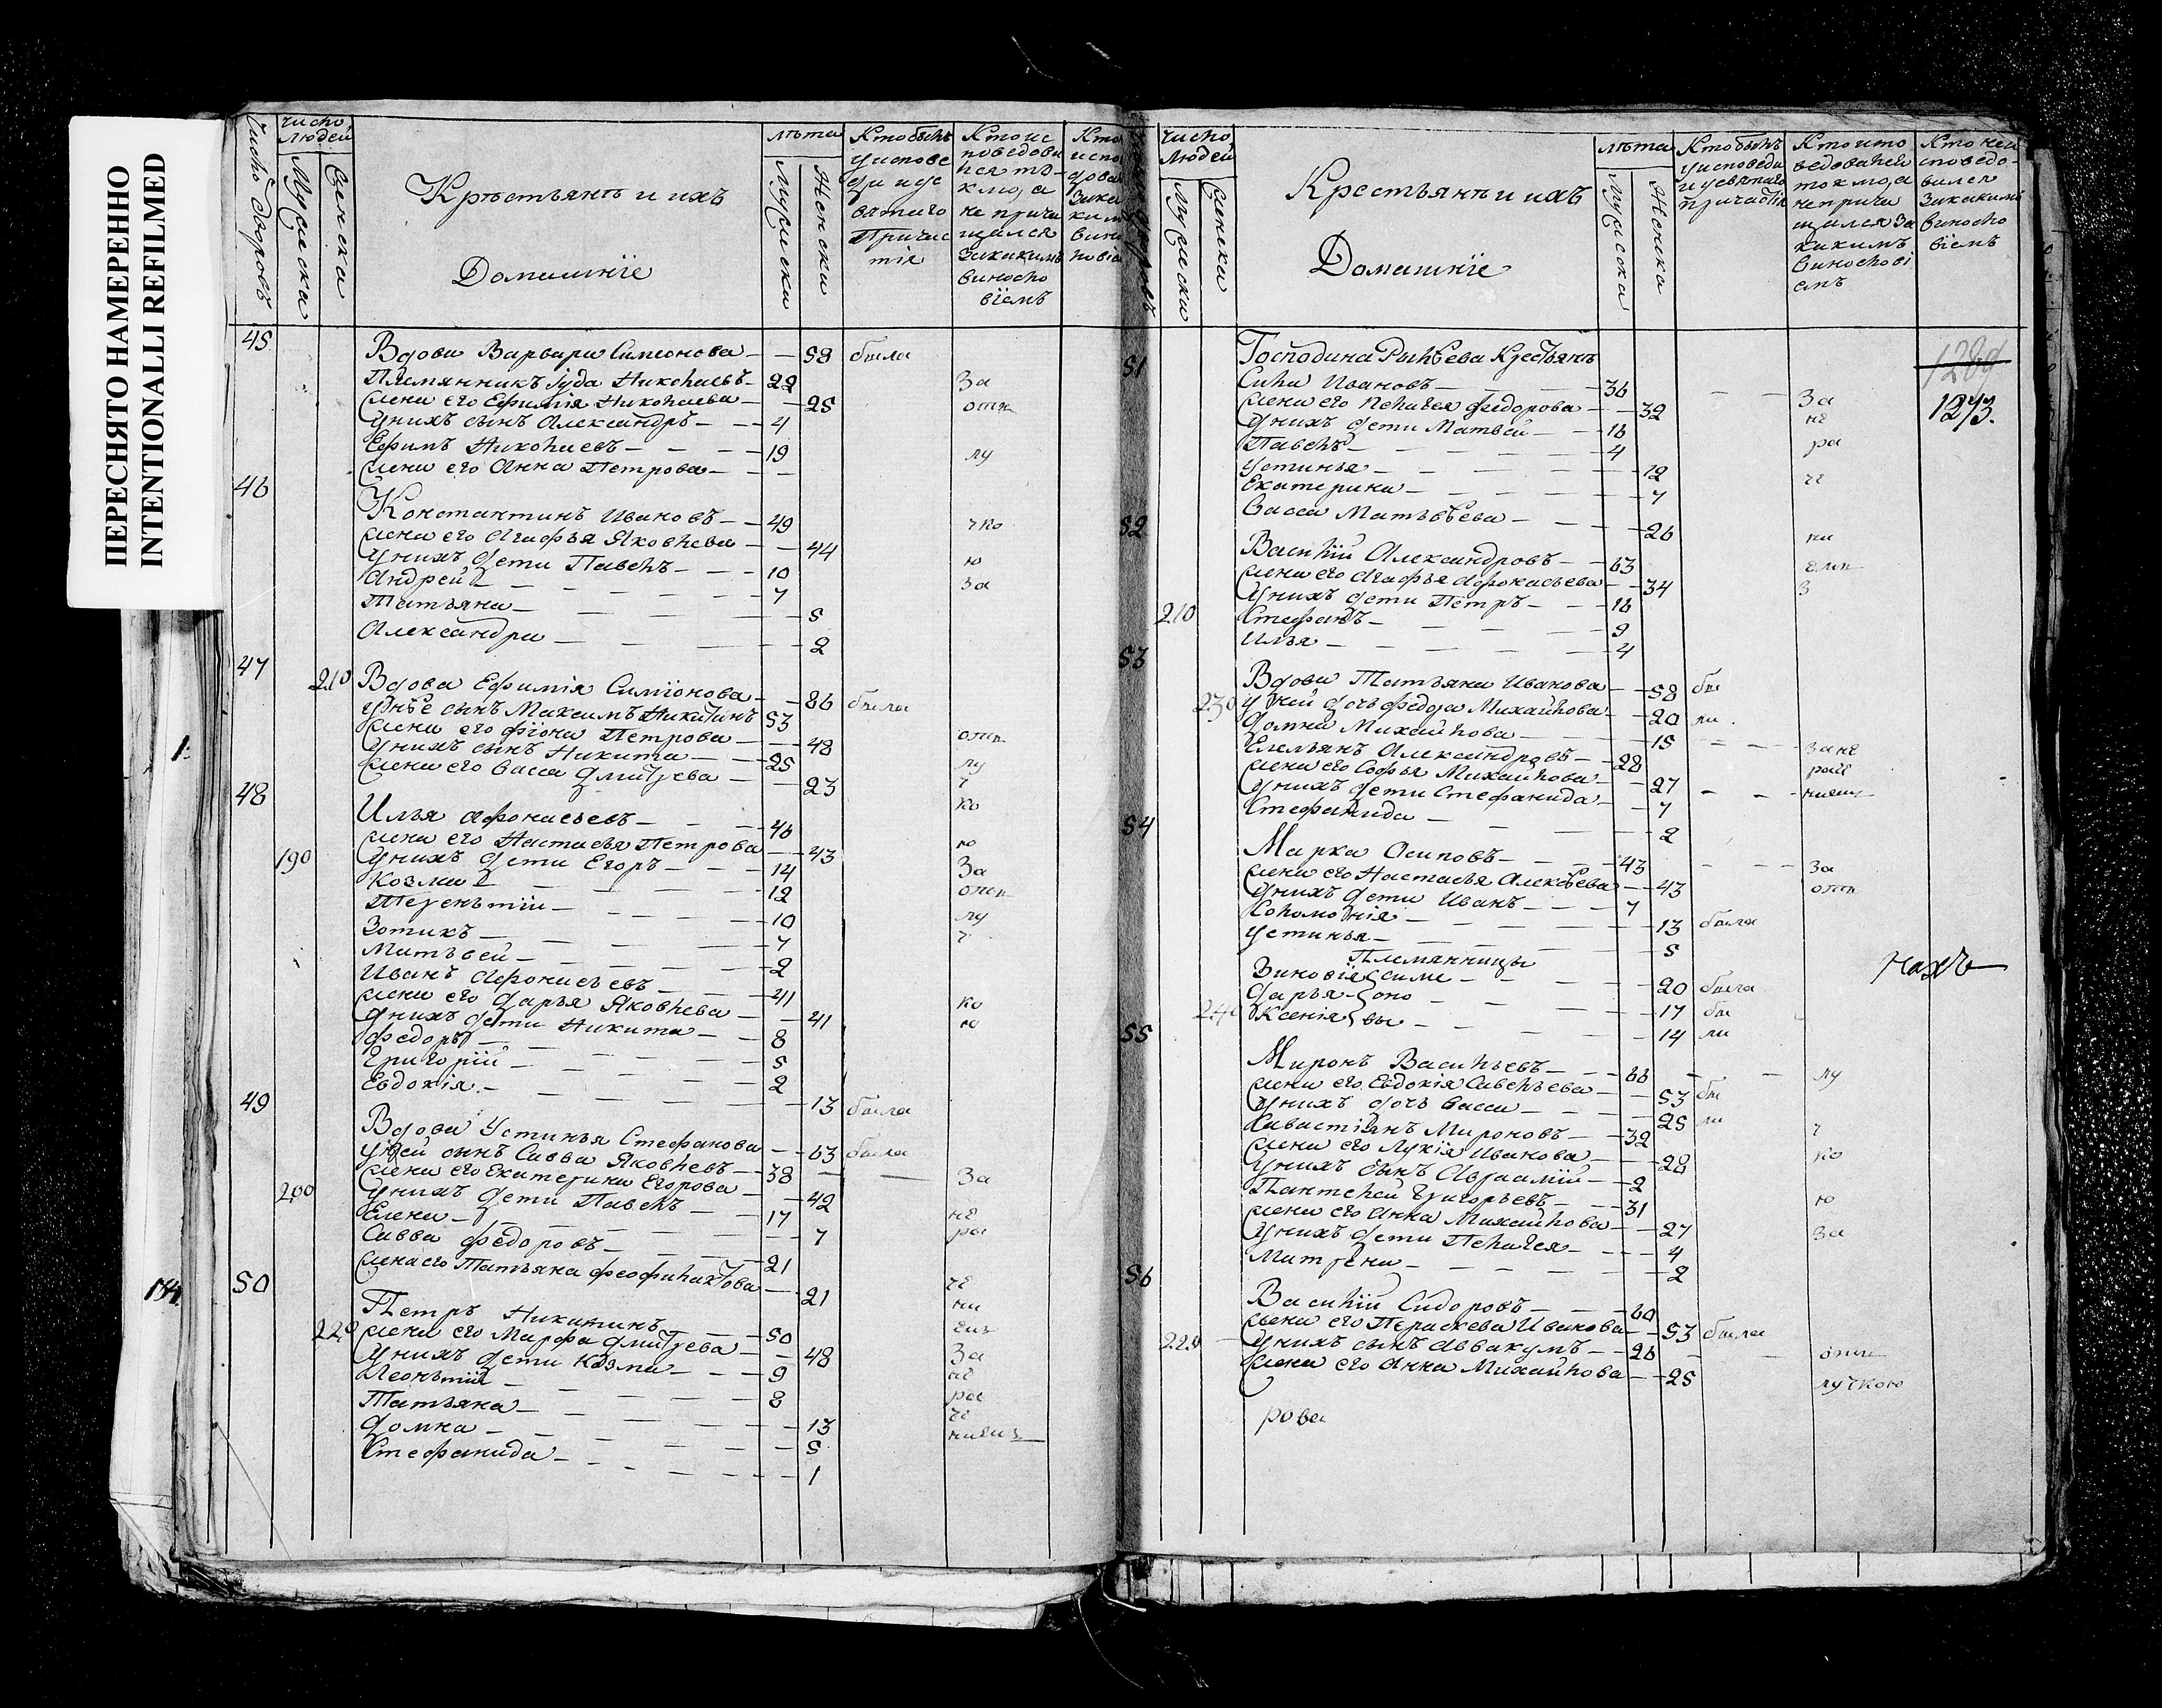 ПЕРЕСНЯТО НАМЕРЕННО
INTENTIONALLI REFILMED
число дворовъ
число людей
Мужеска
Женска
Крѣстьянѣ и ихъ
Домашнїе
лѣта
Мужеска
Женска
Кто былъ у исповеди и у святаго Причастїя
Кто исповедовался токмо, а не причащался и за какимъ винословїемъ
45 Вдова Варвара Симеонова 58 была
Племянникъ Іуда Николаевъ 22 За
жена его Ефимія Николаева 25 отл
у нихъ сынъ Александръ 4
Ефимъ Николаевъ 19 лу
жена его Анна Петрова
46 Константинъ Ивановъ 49 чко
жена его Агафья Яковлева 44 ю
у нихъ дети Павелъ 10 За
Андрей 7
Татьяна 5
Александра 2
47 210 Вдова Ефимія Симіонова 86 была
у нѣе сынъ Максимъ Никитинъ 53
жена его Фіона Петрова 48 отл
у нихъ сынъ Никита 25 лу
жена его Васса Дмитрева 23 ч
48 Илья Афонасьевъ 46 ко
жена его Настасья Петрова 43 ю
190 у нихъ дети Егоръ 14 За
Козма 12 отл
Терентїи 10 лу
Зотикъ 7 ч
Матьвей 2
Иванъ Афонасьевъ 41
жена его Дарья Яковлева 41 ко
у нихъ дети Никита 8 ю
Федоръ 5
Григорїй 2
Евдокія 13 была
49 Вдова Устинья Стефанова 63 была
у ней сынъ Савва Яковлевъ 38 За
жена его Екатерина Егорова 42
200 у нихъ дети Павелъ 17 не
Елена 7 ра
Савва Федоровъ 21
жена его Татьяна Феофилактова 21 че
50 Петръ Никитинъ 50 ни
220 жена его Марфа Дмитрева 48 емъ
у нихъ дети Козма 9 За
Леонтїй 8 не
Татьяна 13 ра
Домна 5 че
Стефанида 1
число людей
Мужеска
Женска
Крестьянѣ и ихъ
Домашнїе
лѣта
Мужеска
Женска
Кто былъ у исповеди и у святаго причастїя
Кто исповедовался токмо, а не причащался за какимъ винословїемъ
Кто не исповедовался за какимъ винословїемъ
1289
1273.
51 Господина Рылѣева Крестьянѣ
Сила Ивановъ 36 За
жена его Пелагея Федорова 32 не
у нихъ дети Матвей 16 ра
Павелъ 4
Устинья 12 че
Екатерина 7
Васса Матьвѣева 26 ни
52 Василїй Александровъ 63
жена его Агафья Афонасьева 34 З
у нихъ дети Петръ 16
210 Стефанъ 9
Илья 4
53 Вдова Татьяна Иванова 58 бы
230 у ней дочь Федора Михайлова 20 ла
Домна Михайлова 15
Емельянъ Александровъ 28 За не
жена его Софья Михайлова 27 раче
у нихъ дети Стефанида 7
Стефанида 2
54 Марка Осиповъ 43 За
жена его Настасья Алексѣева 43 отл
у нихъ дети Иванъ 7
Соломонія 13 была
Устинья 5
Племянницы
Зиновїя симе 20 была
Дарья оно 17 бы
240 Ксенія вы 14 ли
55 Миронъ Васильевъ 66 лу
жена его Евдокія Савельева 53 бы
у нихъ дочь Васса 25 ли
Савастїянъ Мироновъ 32 ч
жена его Лукїя Иванова 28 ко
у нихъ сынъ Авраамїй 2
Пантелей Григорьевъ 31 ю
жена его Анна Михайлова 27 За
у нихъ дети Пелагея 4
Матрена 2
56 Василїй Сидоровъ 60
жена его Параскева Иванова 53 была
220 у нихъ сынъ Аввакумъ 26 отл
жена его Анна Михайлова 25 лучкою
рова